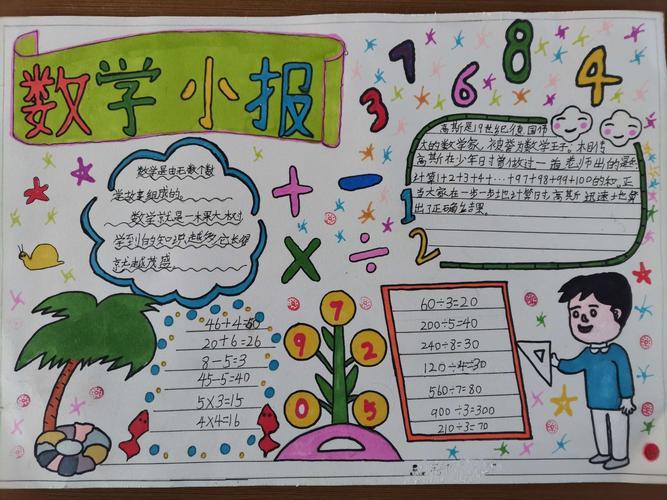 数学小报
7 8
3 6 4
数学是由无数个数
学故事组成的。
数学就是一棵大树
学到的知识越多它长得
就越茂盛。
+ −
× ÷
高斯是19世纪德国伟
大的数学家,被誉为数学王子。相传
高斯在少年时曾做过一道老师出的
计算1+2+3+4+…+97+98+99+100的和。正
当大家在一步一步地计算时,高斯迅速地算
出了正确结果。
1
2
46+4=50
20+6=26
8-5=3
45-5=40
5×3=15
4×4=16
7
9 2
0 5
60÷3=20
200÷5=40
240÷8=30
120÷4=30
560÷7=80
900÷3=300
210÷3=70